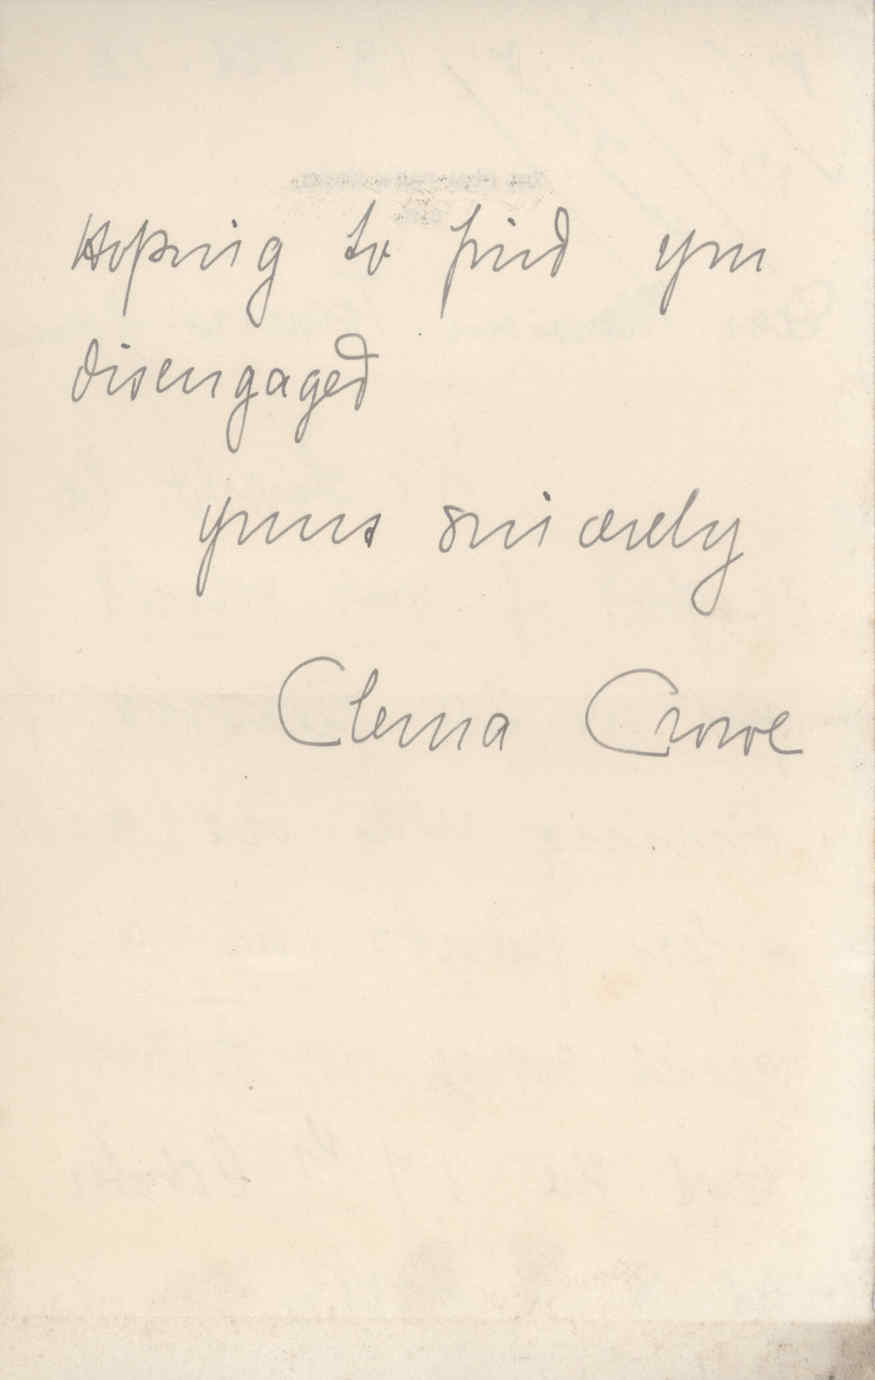 Hoping to find you
disengaged
yours sincerely
Clema Crowe